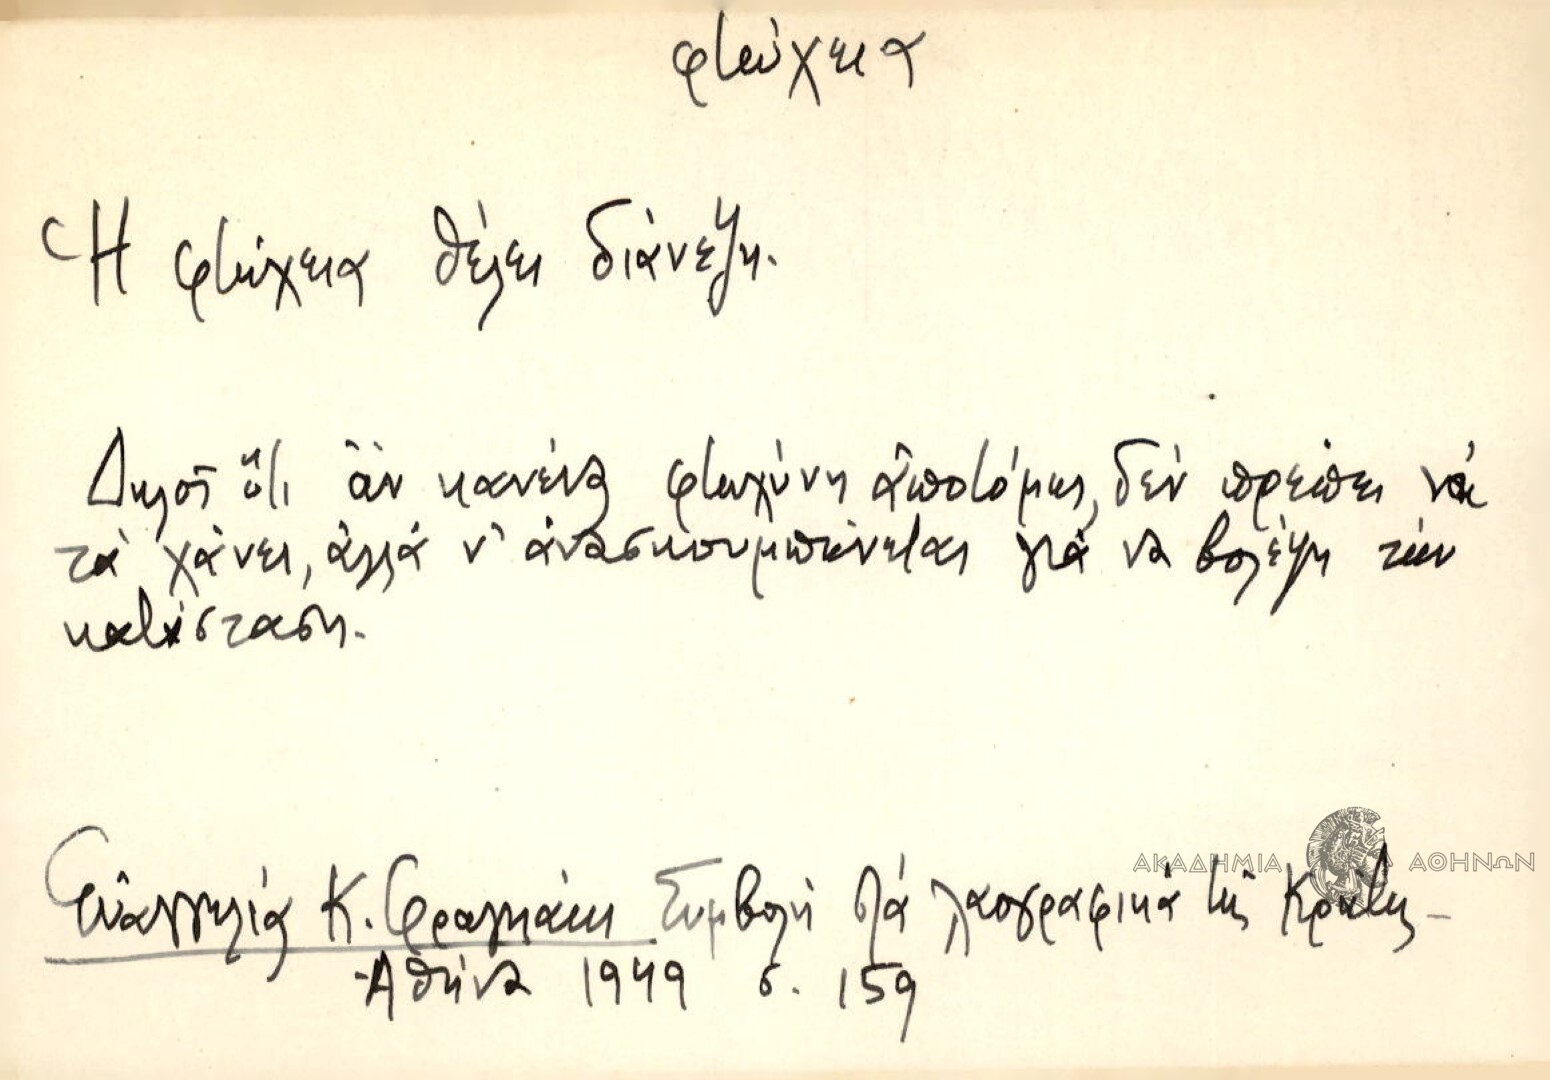 φτώχεια
Ἡ φτώχεια θέλει διάνεξη.
Δηλοῖ ὅτι ἂν κανένα φτωχύνη ἀποτόμως, δέν πρέπει νά
τά χάνει, ἀλλά ν' ἀνασκουμπώνεται γιά να βολέψη τήν
κατάσταση.
Εὐαγγελία Κ. Φραγκάκι Συμβολή στά λαογραφικά τῆς Κρήτης_
Ἀθήνα 1949 σ. 159
ΑΚΑΔΗΜΙΑ ΑΘΗΝΩΝ